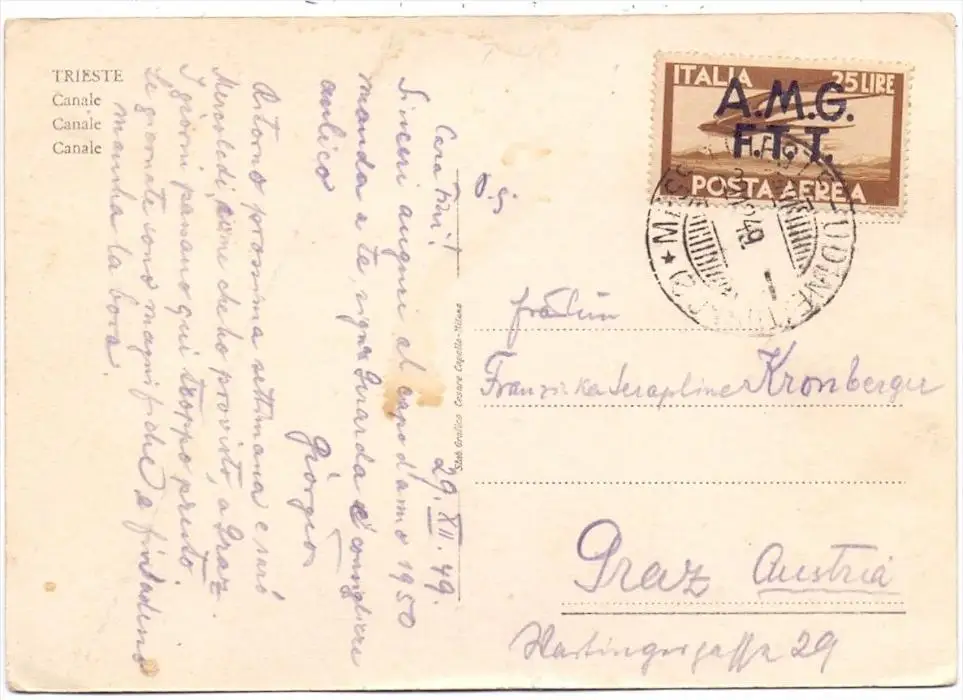 TRIESTE
Canale
Canale
Canale
29. XII. 49.
Cara Frini!
Sinceri auguri al capo d'anno 1950
manda a te, sigra Guarda e consigliere
aulico
Giorgio
Ritorno prossima settimana e sarò
Mercoledì, ciò che ho provvisto, a Graz.
I giorni passano qui troppo presto.
Le giornate sono magnifiche e
mancha la bora.
Stab. Grafico Cesare Capello-Milano
ITALIA 25 LIRE
A.M.G.
F.T.T.
POSTA AEREA
UDINE
49
Fräulein
Franziska Serapline Kronberger
Graz Austria
Hartingergasse 29